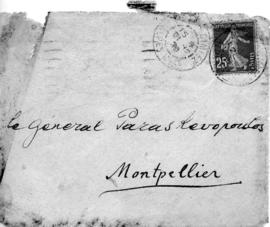 le General Paraskevopoulos
Montpellier
25